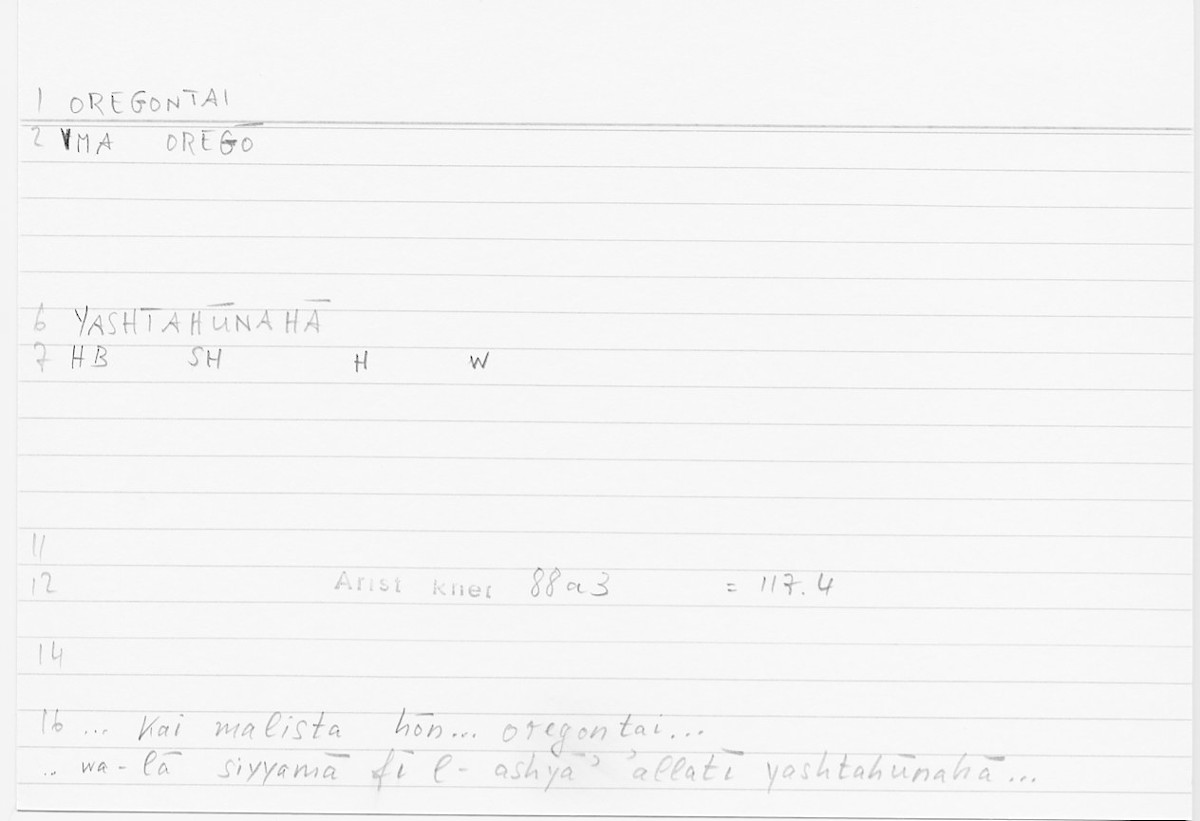 1 OREGONTAI
2 VMA OREGŌ
6 YASHTAHŪNAHĀ
7 HB SH H W
11
12 Arist kner 88a3 = 117.4
14
16 ... kai malista hōn... oregontai...
.. wa-lā siyyamā fī l-ashyāʾ ʾallatī yashtahūnahā...